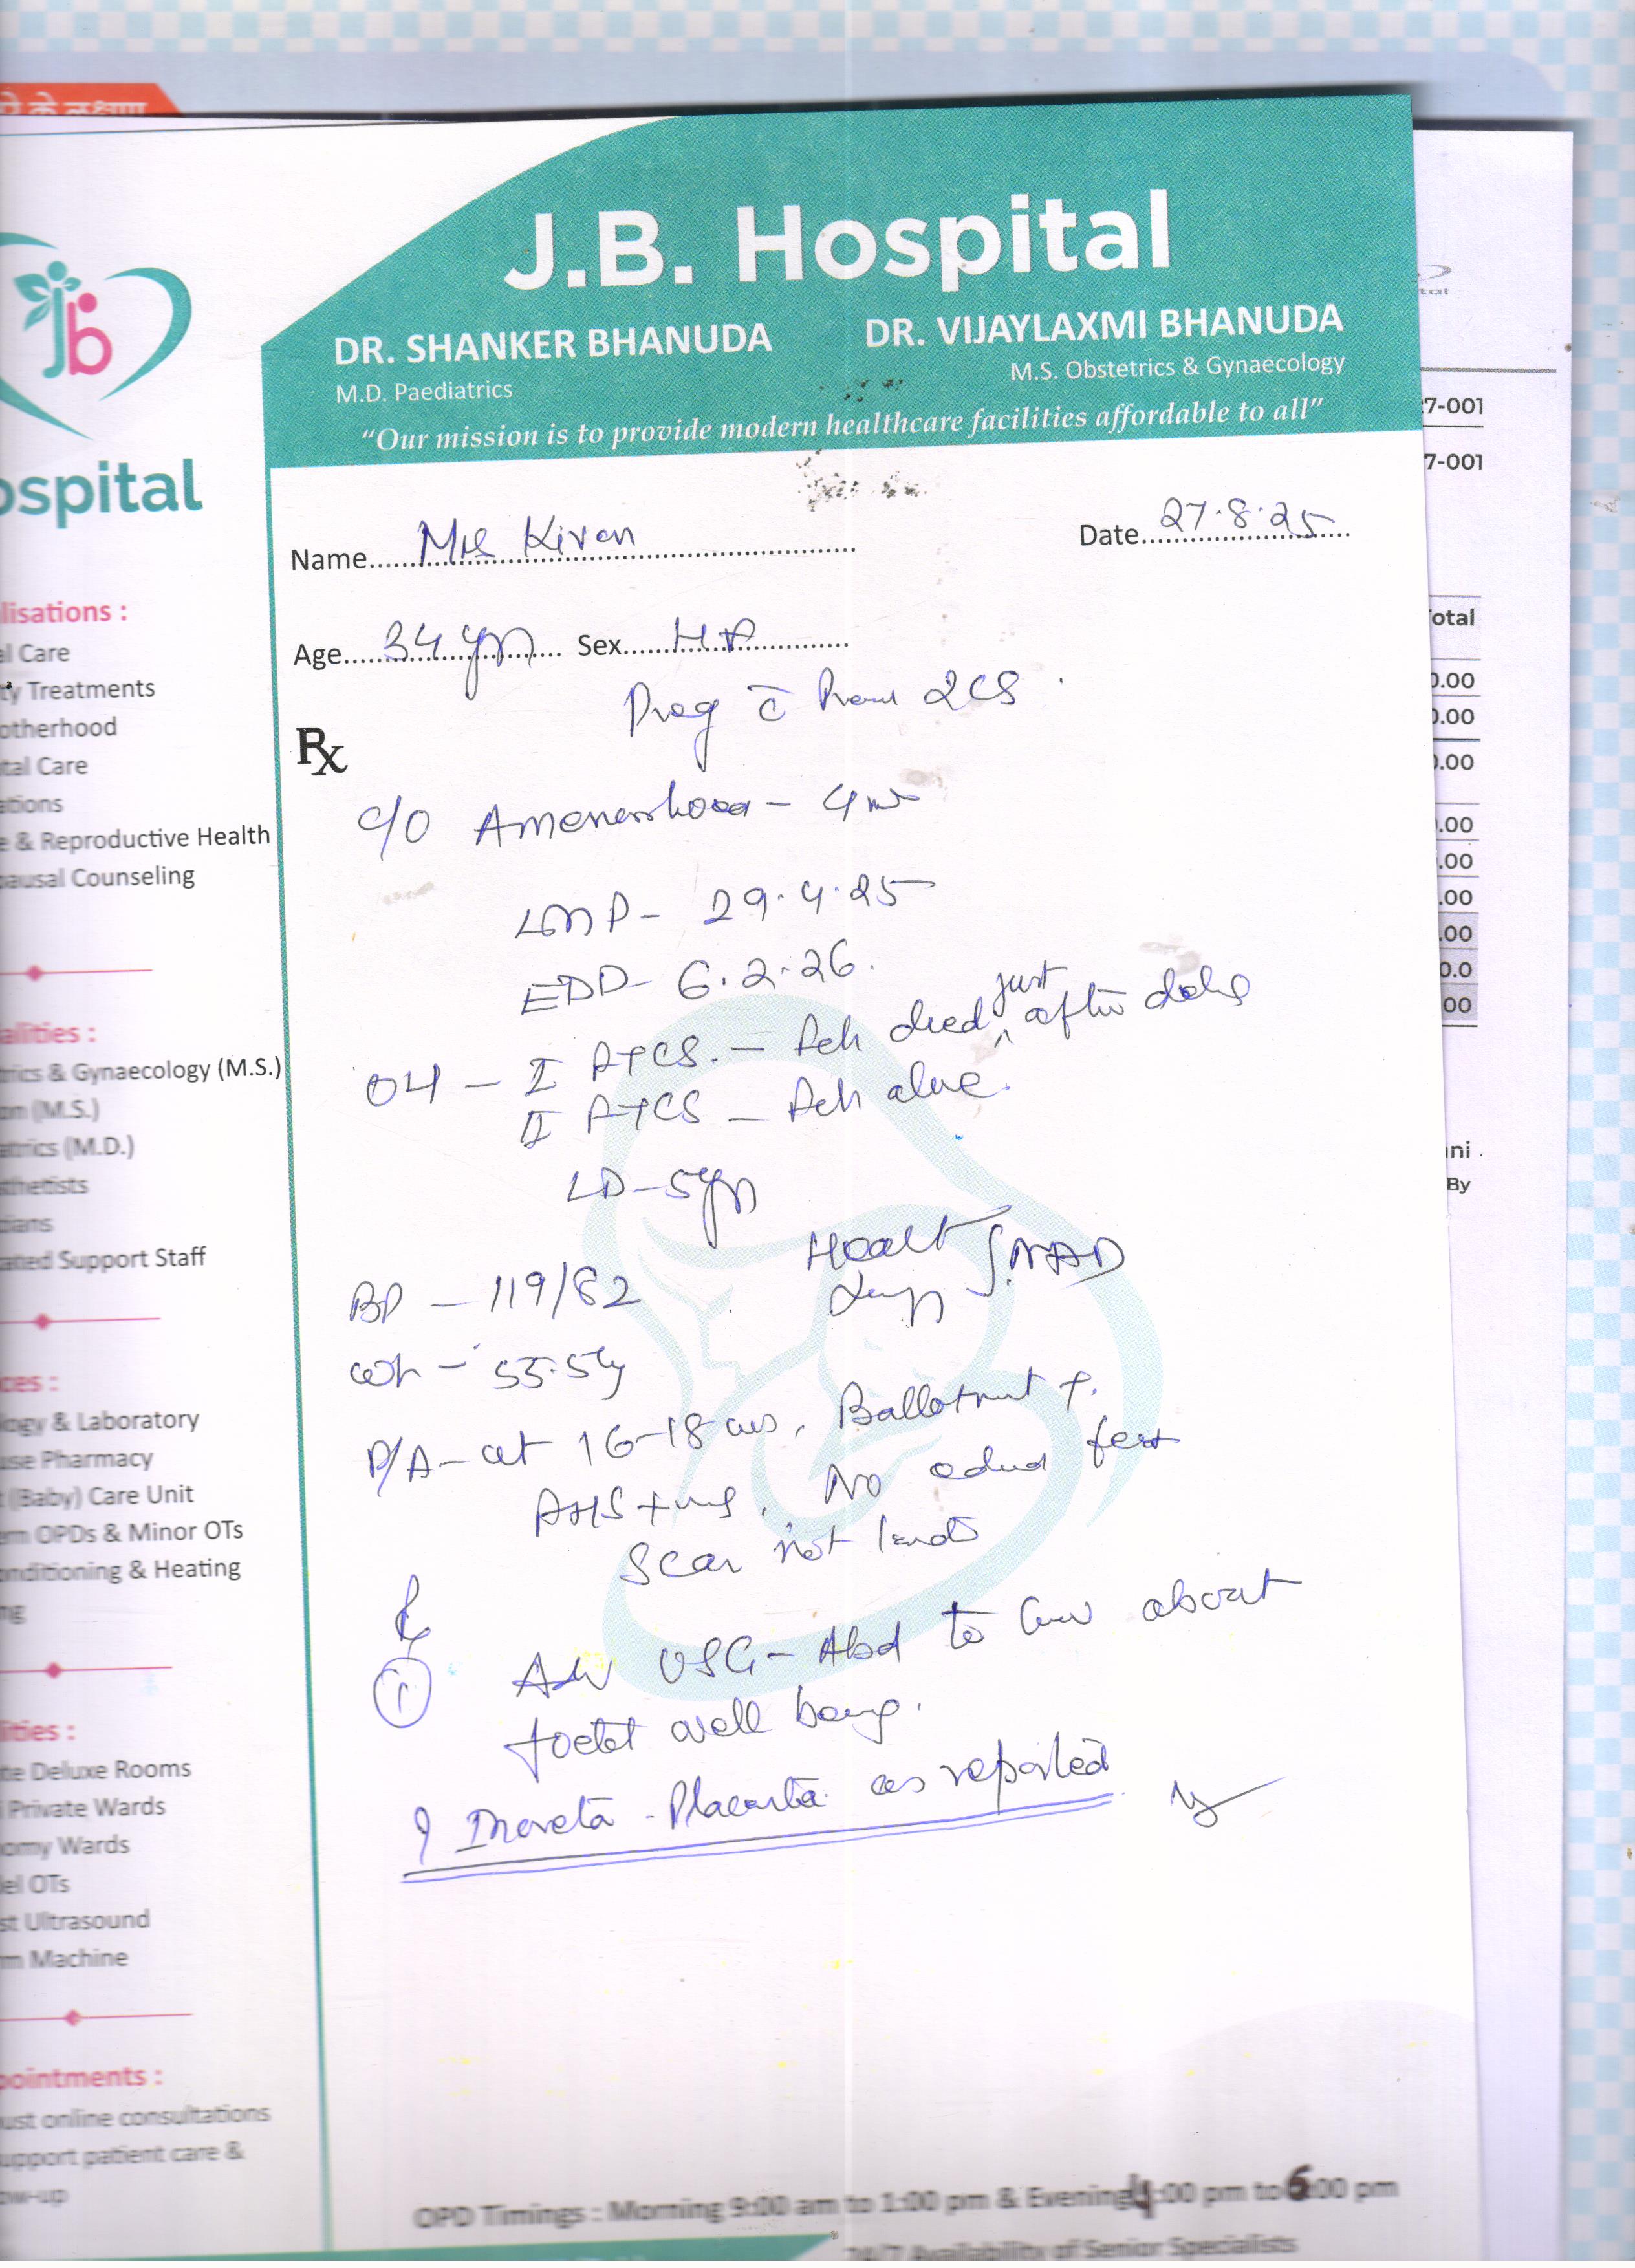 J.B. Hospital
DR. SHANKER BHANUDA
M.D. Paediatrics
DR. VIJAYLAXMI BHANUDA
M.S. Obstetrics & Gynaecology
“Our mission is to provide modern healthcare facilities affordable to all”
Name Mrs Kiran
Date 27.8.25
Age 34 yrs Sex
Preg c̄ 2CS
Rx
C/O
LMP- 29.4.25
EDD- 6.2.26.
OH - I FTCS. - died just after
II FTCS - alive.
LD-5yrs
BP - 119/82
Heart
Lungs } NAD
Wt -
P/A - at 16-18 wks, Ballotment +.
No
Scar not
1
Adv USG - Abd to about
foetal well being.
? Increta - Placenta as reported
OPD Timings : Morning 9:00 am to 1:00 pm & Evening 4:00 pm to 6:00 pm
24/7 Availability of Senior Specialists
jb
ospital
lisations :
al Care
ty Treatments
otherhood
tal Care
ations
e & Reproductive Health
pausal Counseling
alities :
trics & Gynaecology (M.S.)
on (M.S.)
atrics (M.D.)
sthetists
dians
ated Support Staff
ces :
logy & Laboratory
use Pharmacy
t (Baby) Care Unit
rm OPDs & Minor OTs
onditioning & Heating
ng
lities :
te Deluxe Rooms
i Private Wards
omy Wards
lel OTs
st Ultrasound
m Machine
pointments :
ust online consultations
upport patient care &
ow-up
7-001
7-001
otal
0.00
0.00
0.00
.00
.00
.00
.00
0.0
00
ni
By